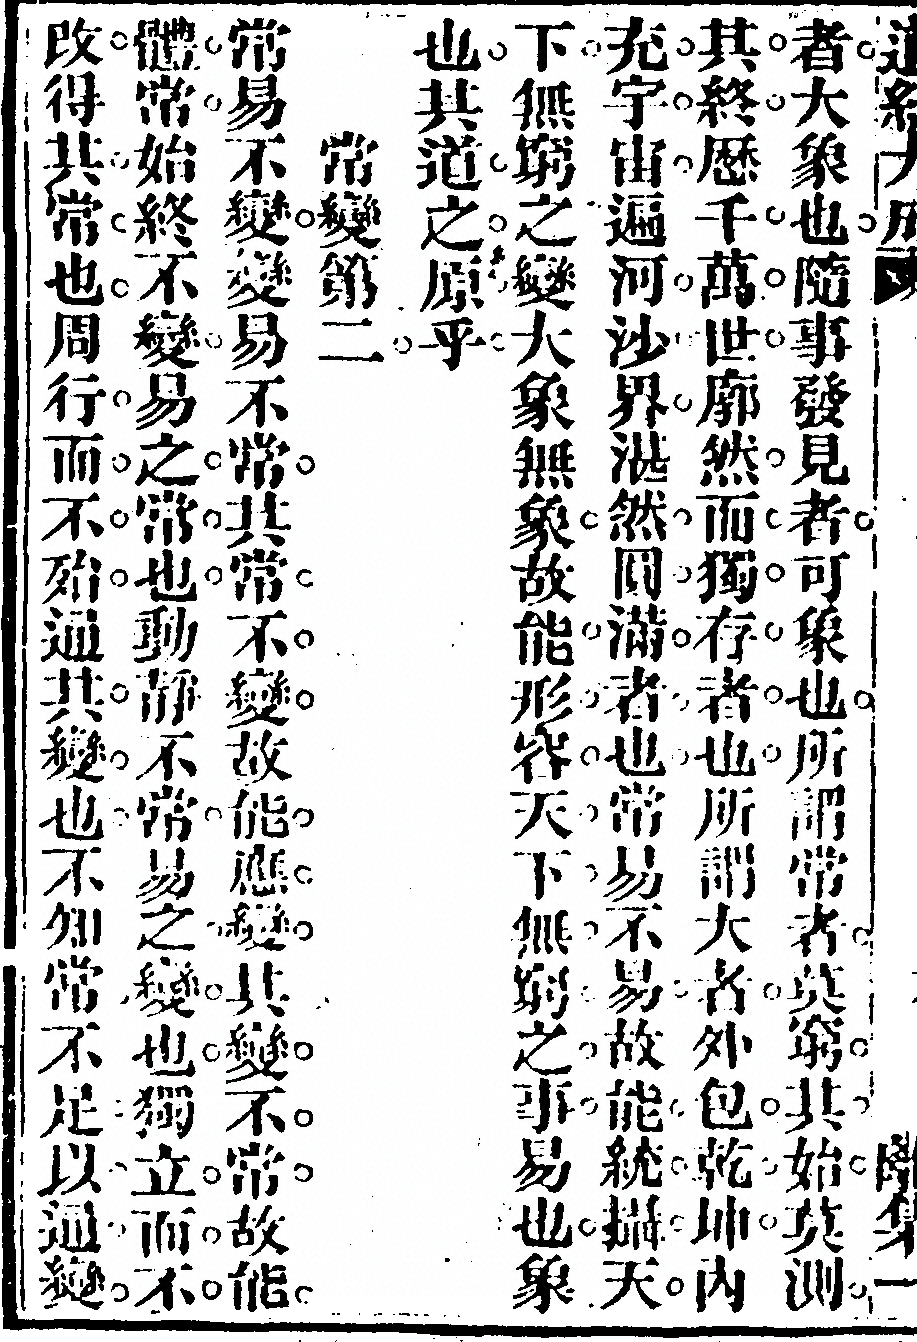 者大象也隨事發見者可象也所謂常者莫窮其始莫測
其終歷千萬世廓然而獨存者也所謂大者外包乾坤內
充宇宙遍河沙界湛然圓滿者也常易不易故能統攝天
下無窮之變大象無象故能形容天下無窮之事易也象
也其道之原乎
常變第二
常易不變變易不常其常不變故能應變其變不常故能
體常始終不變易之常也動靜不常易之變也獨立而不
改得其常也周行而不殆通其變也不知常不足以通變